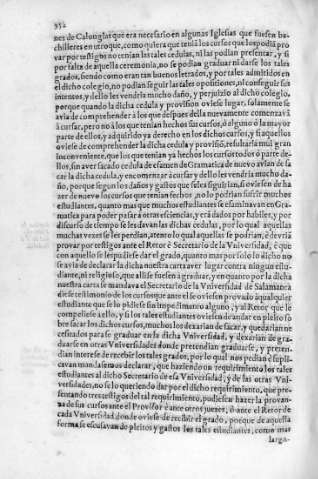 352
nes de Calongias que era necesario en algunas Iglesias que fuesen ba-
chilleres en utroque, como quiera que tenia los cursos que los podia pro
var por testigos no tenian las tales cedulas, ni las podian presentar, y si
por falta de aquella ceremonia, no se podian graduar ni darse los tales
grados, siendo como eran tan buenos letrados, y por tales admitidos en
el dicho colegio, no podian seguir las tales oposiciones, ni conseguir sus
intentos, y dello les vendria mucho daño, y perjuizio al dicho colegio,
porque quando la dicha cedula y provision oviese lugar, solamente se
avia de comprehender a los que despues della nuevamente comenzava
a cursar, pero no a los que tenian hechos sus cursos, o alguno o la mayor
parte de ellos, y adquirido ya derecho en los dichos cursos, y si aquellos
oviese de comprehender la dicha cedula y provisio, resultaria mui gran
inconveniente, que los que tenian ya hechos los cursos todos o parte de-
llos, sin aver sacado cedula de esamen de Gramatica de nuevo avian de sa
car la dicha cedula, y encomenzar a cursar y dello les vendria mucho da-
ño, porque segun los daños y gastos que se les siguirian, si oviesen de ha
zer de nuevo los cursos que tenian fechos, no lo podrian sufrir muchos
estudiantes, quanto mas que muchos estudiantes se esaminavan en Gra-
matica para poder pasar a otras ciencias, y era dados por habiles, y por
discurso de tiempo se les davan las dichas cedulas, por lo qual aquellas
muchas vezes se les perdian, e en lo qual aquellas se podrian, e devria
provar por testigos ante el Retor e Secretario de la Universidad, e que
con aquello se les pudiese dar el grado, quanto mas por solo lo dicho no
se avia de declarar la dicha nuestra carta aver lugar contra ningun estu-
diante, ni religioso, que alli se fuesen a graduar, y en quanto por la dicha
nuestra carta se mandava el Secretario de la Universidad de Salamanca
diese testimonio de los cursos que ante el se oviesen provado a qualquier
estudiante que se lo pidiese sin impedimento alguno, y al Retor que le
compeliese a ello, y si los tales estudiantes oviesen de andar en pleito so
bre sacar los dichos cursos, muchos los dexarian de sacar, y quedarian ne
cesitados para se graduar en la dicha Universidad, y dexarian de gra-
duarse en otras Universidades donde pretendian graduarse, y preten-
dian interese de recebir los tales grados, por lo qual nos pedian e supli-
cavan mandasemos declarar, que haziendo un requirimiento los tales
estudiantes al dicho Secretario de esa Universidad, y de las otras Uni-
versidades, no se lo queriendo dar por el dicho requirimiento, que pre-
sentando tres testigos del tal requirimiento, pudiesen hazer la provan-
za de sus cursos ante el Provisor e ante otros juezes, o ante el Retor de
cada Universidad donde oviese de recibir el grado, porque de aquella
forma se escusavan de pleitos y gastos los tales estudiantes, como mas
larga-